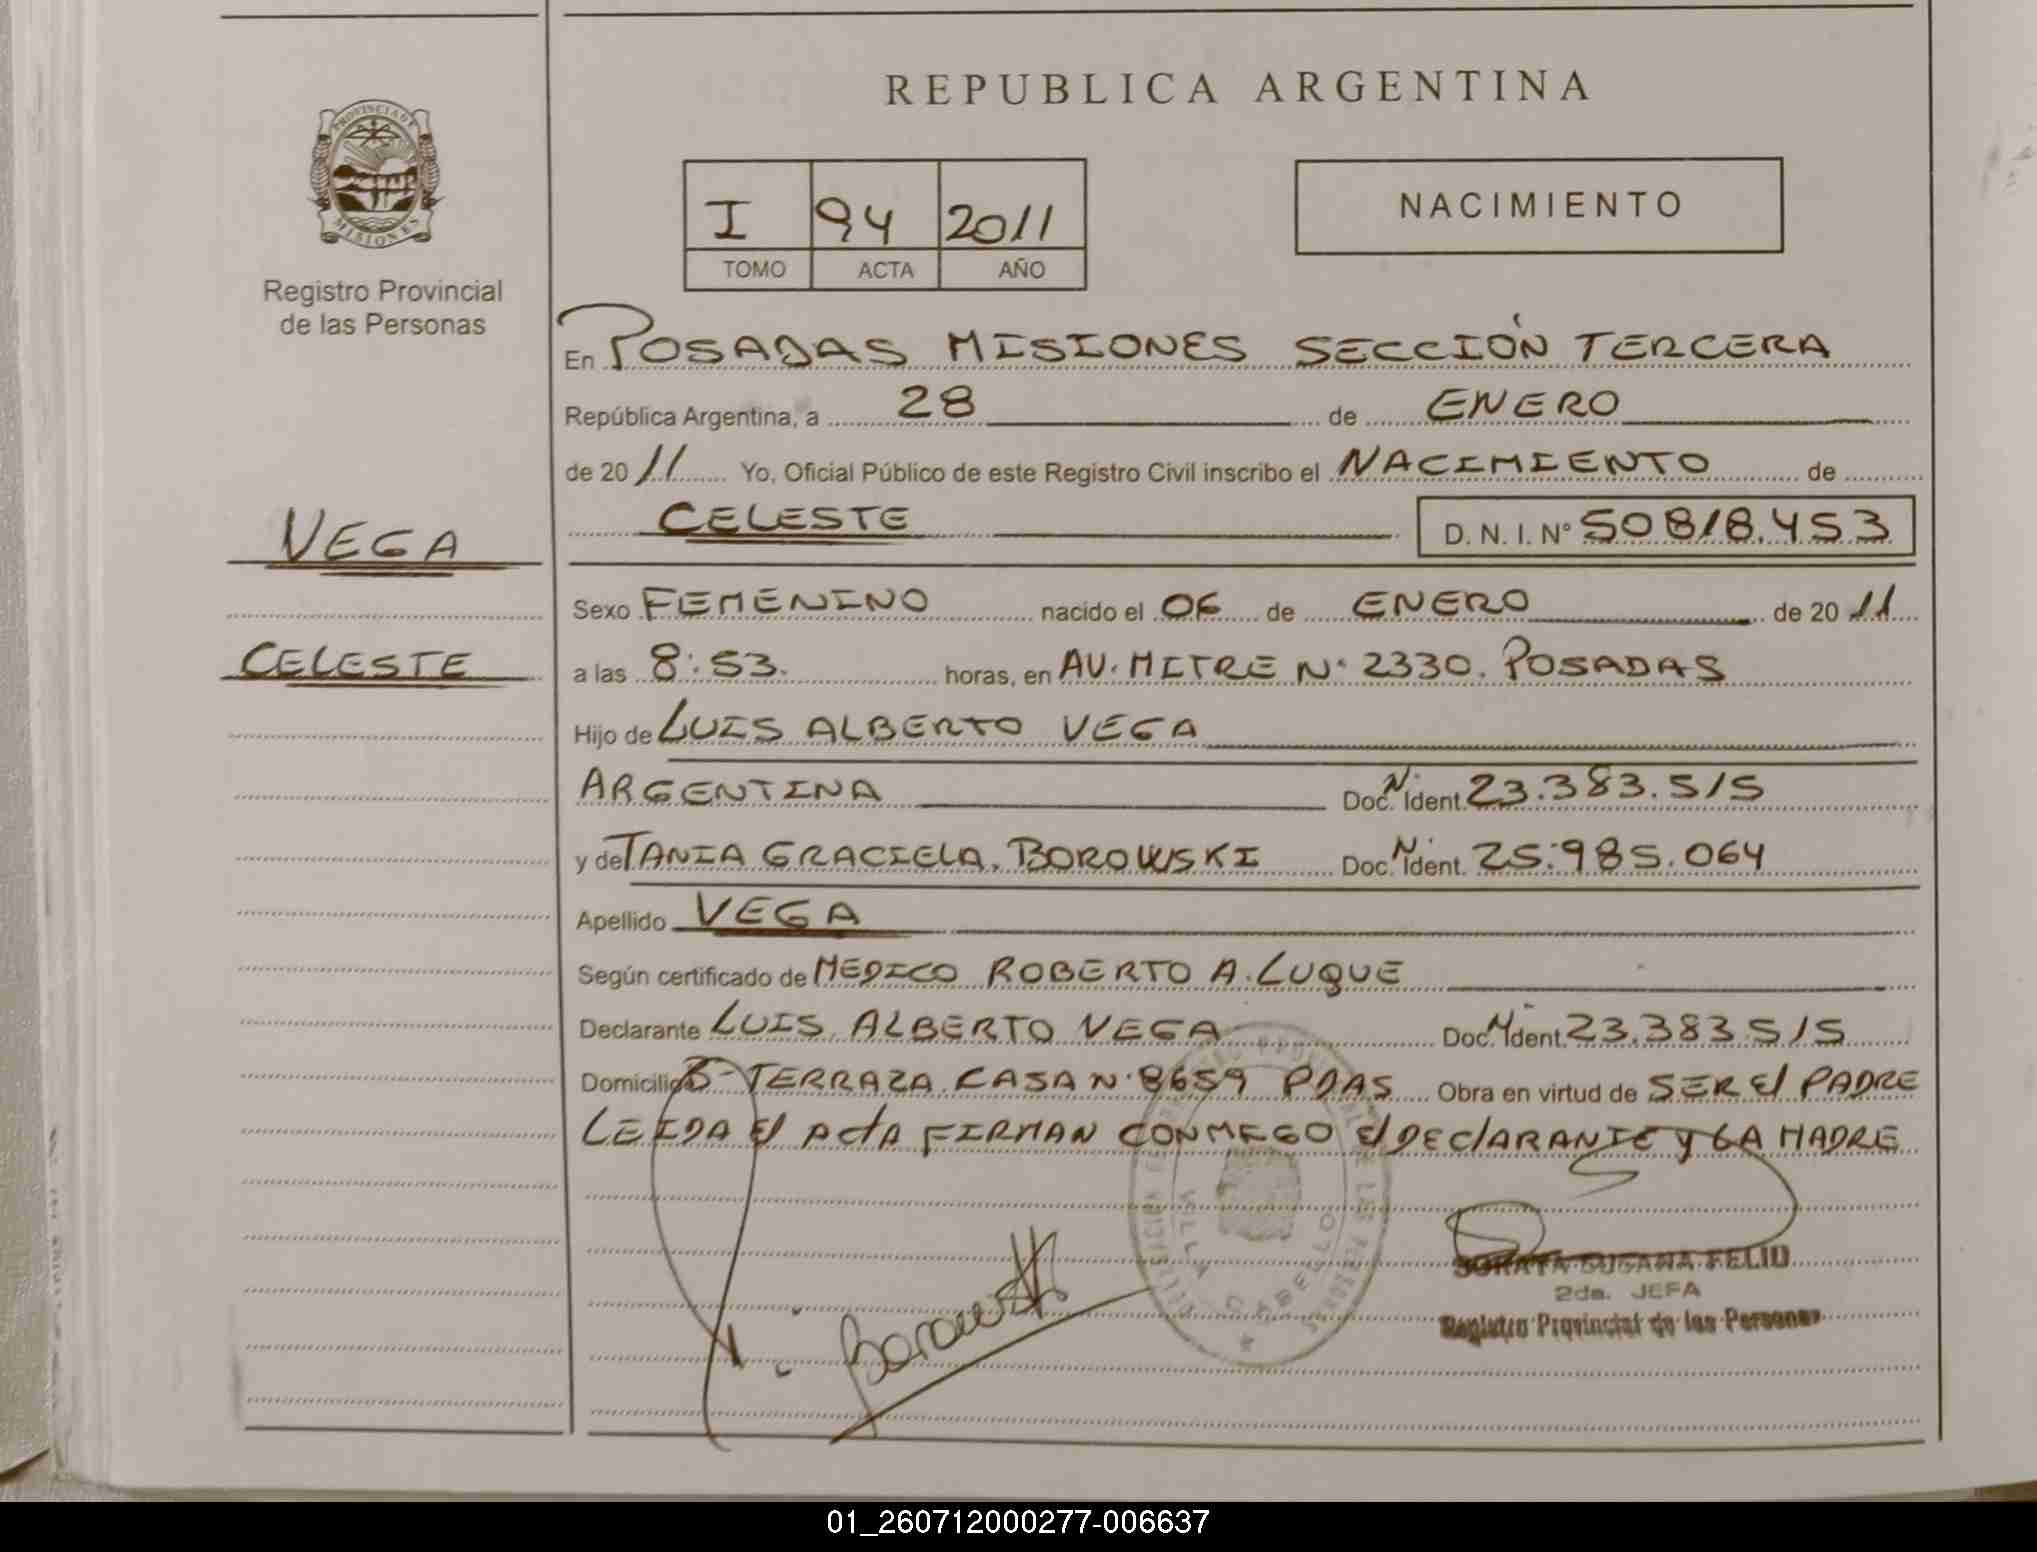 REPUBLICA ARGENTINA
PROVINCIA DE MISIONES
Registro Provincial
de las Personas
I 94 2011
TOMO ACTA AÑO
NACIMIENTO
En POSADAS MISIONES SECCIÓN TERCERA
República Argentina, a 28 de ENERO
de 2011 Yo, Oficial Público de este Registro Civil inscribo el NACIMIENTO de
CELESTE D. N. I. Nº 50818.453
VEGA
CELESTE
Sexo FEMENINO nacido el 06 de ENERO de 2011
a las 8:53. horas, en AV. MITRE Nº 2330. POSADAS
Hijo de LUIS ALBERTO VEGA
ARGENTINA Doc. Nº Ident. 23.383.515
y de TANIA GRACIELA. BOROWSKI Doc. Nº Ident. 25.985.064
Apellido VEGA
Según certificado de MEDICO ROBERTO A. LUQUE
Declarante LUIS ALBERTO VEGA Doc. Nº Ident. 23.383.515
Domicilio Bº TERRAZA CASA Nº 8659 PDAS Obra en virtud de SER El PADRE
LEIDA El ActA FIRMAN CONMIGO El DEClARANTE y LA MADRE
Borowski
SORAYA SUSANA FELIU
2da. JEFA
Registro Provincial de las Personas
01_260712000277-006637